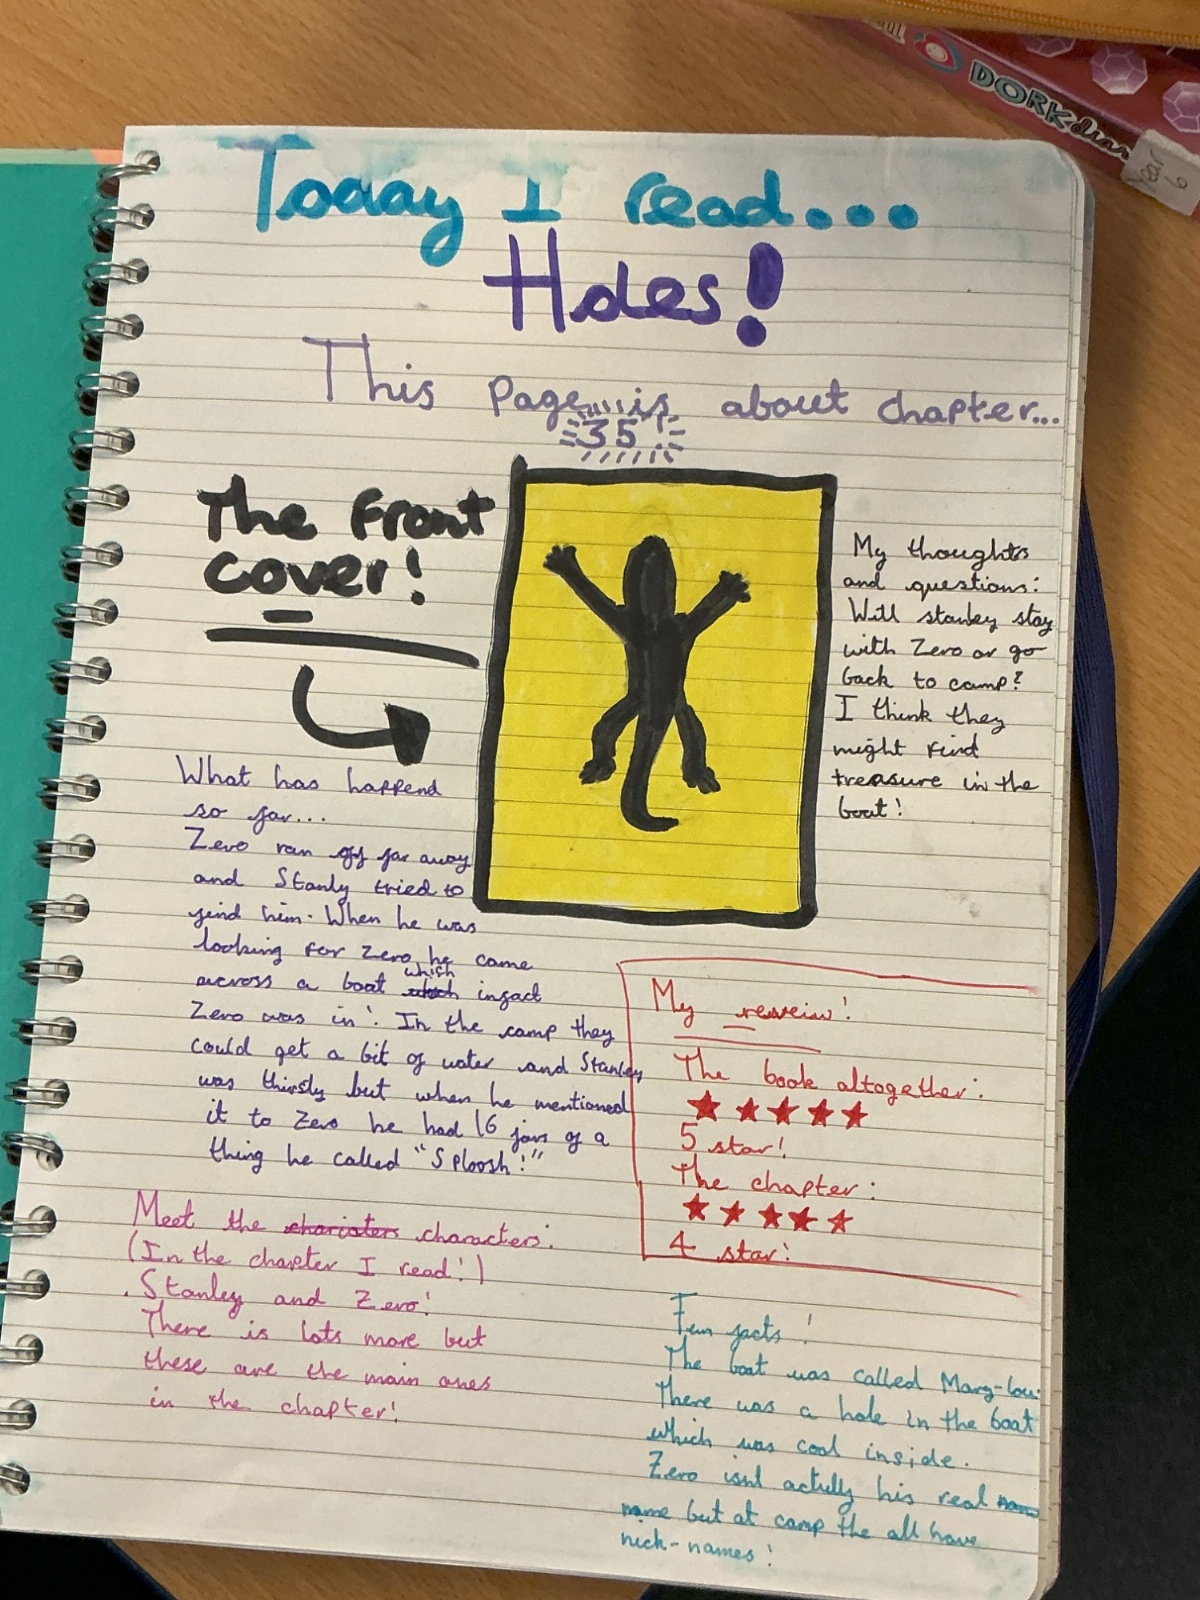 DORK diar
Year
6
Today I read...
Holes!
This page is about chapter...
35
The front
cover!
My thoughts
and questions:
Will stanley stay
with Zero or go
back to camp?
I think they
might find
treasure in the
boat!
What has happend
so far...
Zero ran off far away
and Stanly tried to
find him. When he was
looking for Zero he came
across a boat which infact
Zero was in! In the camp they
could get a bit of water and Stanley
was thirsty but when he mentioned
it to Zero he had 16 jars of a
thing he called "Sploosh!"
Meet the chariaters characters:
(In the chapter I read!)
. Stanley and Zero!
There is lots more but
these are the main ones
in the chapter!
My reveiw!
The book altogether:
5 star!
The chapter:
4 star!
Fun facts!
The boat was called Mary-lou.
There was a hole in the boat
which was cool inside.
Zero isnt actully his real nam
name but at camp the all have
nick-names!